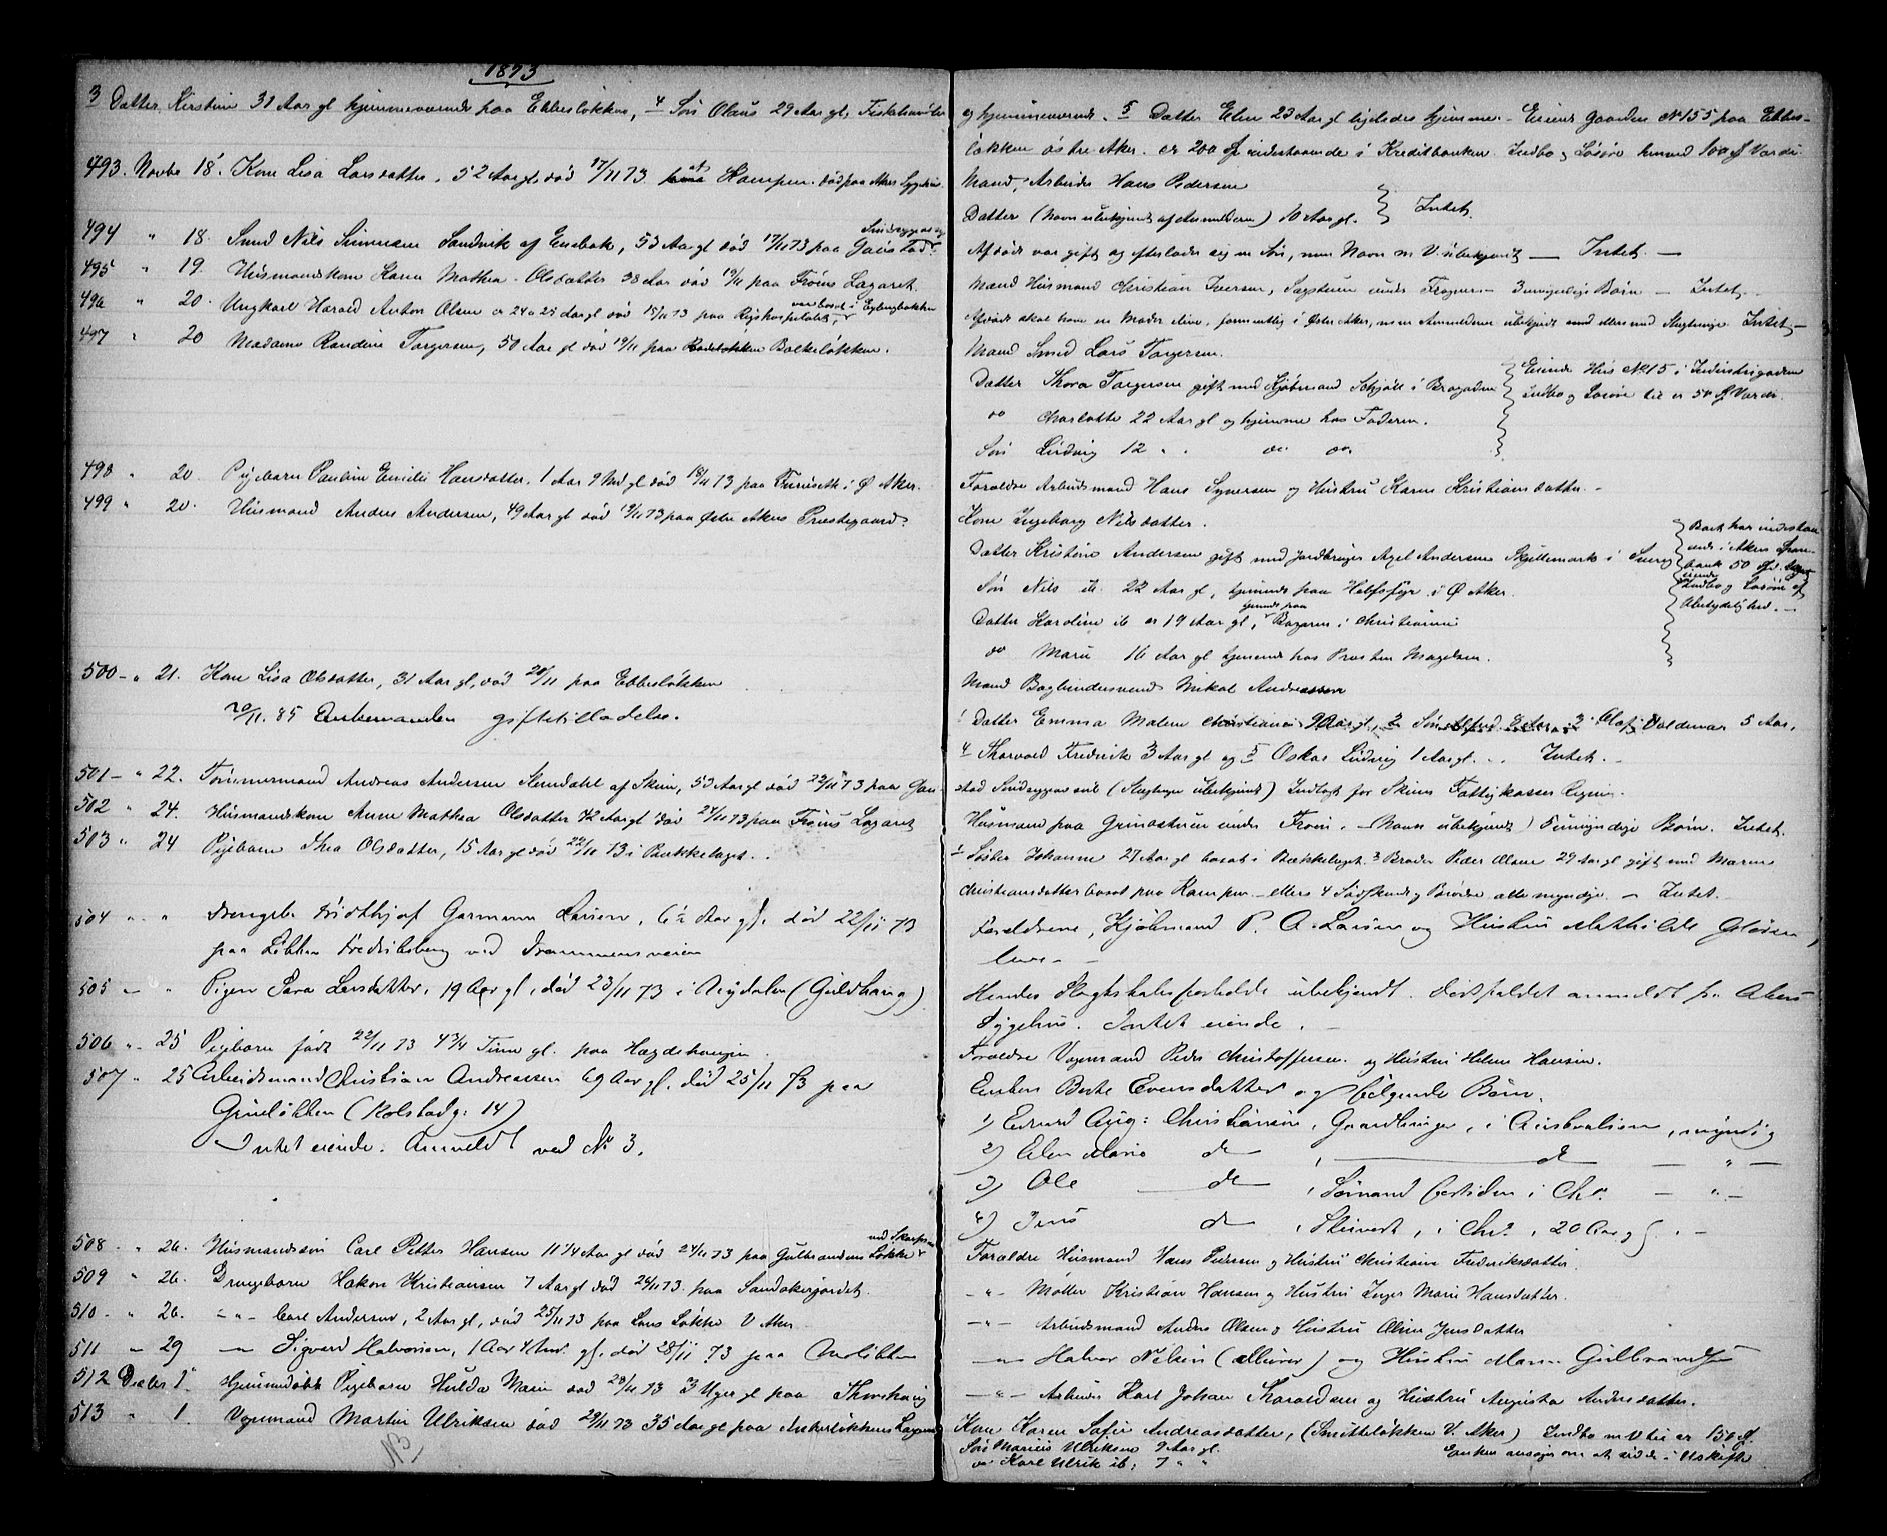 1873
3 Datter Kirstine 31 Aar gl hjemmeværende paa Ebbesløkken, 4 Søn Olaus 29 Aar gl. Fiskehandler
og hjemmeværende. 5 Datter Elen 23 Aar gl ligeledes hjemme. - Eiende Gaarden No 155 paa Ebbes-
løkken østre Aker. er 200 indestaaende i Kreditbanken. Indbo og Løsøre henved 100 Værdi
493. Novbr 18. Kone Lisa Larsdatter, 52 Aar gl. død 17/11 73 Kampen. død paa Akers Sygehus.
Mand, Arbeider Hans Pedersen
Datter (Navn ubekjendt af Anmelderen) 10 Aar gl. Intet.
494 " 18. Smed Nils Simensen Sandvik af Enebak, 53 Aar gl død 17/11 73 paa Gaustad Sindssygeasyl
Afdøde var gift og efterlader sig en Søn, men Navn m V. ubekjendt — Intet. —
495 " 19. Husmandskone Karen Mathea Olsdatter 38 Aar død 19/11 paa Frøens Lazaret.
Mand Husmand Christian Iversen, Sæpteren under Frogner - 3 umyndige Børn - Intet -
496 " 20. Ungkarl Harald Anton Olsen er 24 a 25 Aar gl død 15/11 73 paa Rigshospitalet, var bosat i Eglingbakken
Afdøde skal have en Moder ilive, formentlig i Øster Aker, men Anmelderen ubekjendt med Slægtninge. Intet -
497 " 20 Madame Randine Torgersen, 50 Aar gl død 19/11 paa Balkeløkken.
Mand Smed Lars Torgersen.
Datter Thora Torgersen gift med Kjøbmand Schjøll i Brogaden
do Charlotte 22 Aar gl og hjemme hos Faderen.
Søn Ludvig 12 " " do do
Eiende Hus No 15 i Industrigaden
Indbo og Løsøre til er 50 Værdi.
498 " 20. Pigebarn Pauline Emilie Hansdatter. 1 Aar 9 Md gl død 18/11 73 paa Furuseth i Ø Aker.
Forældre Arbeidsmand Hans Syversen og Hustru Karen Kristiansdatter. -
499 " 20. Husmand Anders Andersen, 49 Aar gl død 19/11 73 paa Østre Akers Præstegaard.
Kone Ingeborg Nilsdatter.
Datter Kristine Andersen gift med Jordbruger Axel Andersen Skjellemark i Sverig
Søn Nils ib. 22 Aar gl, tjenende paa Helsfyr i Ø Aker.
Datter Karoline ib er 19 Aar gl, tjenende paa Bazaren i Christiania
do Marie 16 Aar gl tjenende hos Presten Magelsen.
Boet har indestaa-
ende i Akers Spare-
bank 50
eiende Indbo og Løsøre af
Ubetydelighed. -
500 - " 21. Kone Lisa Olsdatter, 31 Aar gl, død 20/11 paa Ebbesløkken
20/11. 85 Enkemanden giftetilladelse.
Mand Bogbindersvend Mikal Andreassen
1 Datter Emma Malene Christiane 9 Aar gl, 2 Søn Alfred 8 Aar 3 Olaf Valdemar 5 Aar,
4 Thorvald Fredrik 3 Aar gl og 5 Oskar Ludvig 1 Aar gl. . . Intet. -
501 - " 22. Tømmermand Andreas Andersen Stendahl af Skien, 53 Aar gl død 22/11 73 paa Gau-
stad Sindssygeasyl (Slægtninge ubekjendt) Indlagt for Skiens Fattigkasses Regning.
502 " 24. Husmandskone Anne Mathea Olsdatter 42 Aar gl død 21/11 73 paa Frøens Lazaret
Husmand paa Grimstuen under Frøen. - (Navn ubekjendt) 5 umyndige Børn. Intet.
503 " 24 Pigebarn Thea Olsdatter, 15 Aar gl død 22/11 73 i Bækkelaget. .
1 Søster Johanne 27 Aar gl bosat i Bækkelaget. 2 Broder Peder Olsen 29 Aar gl gift med Maren
Christiansdatter bosat paa Kampen - ellers 4 Søskende Brødre alle myndige - Intet. -
504 " " Drengeb. Fridthjof Garmann Larsen, 6 1/2 Aar gl. død 22/11 73
paa Løkken Fredriksborg ved Drammensveien
Forældrene, Kjøbmand P. A. Larsen og Hustru Mathilde Gløersen,
leve - -
505 - " Pigen Sara Larsdatter, 19 Aar gl, død 23/11 73 i Nydalen (Guldhaug)
Hendes Slægtskabsforholde ubekjendt. Dødsfaldet anmeldt fra Akers
Sygehus. Intet eiende. -
506 " 25 Pigebarn født 22/11 73 4 3/4 Time gl. paa Hægdehaugen
Forældre Vognmand Peder Christoffersen og Hustru Helene Hansen.
507 " 25 Arbeidsmand Christian Andreassen 69 Aar gl. død 25/11 73 paa
Grünløkken (Kolstadg: 14)
Intet eiende. Anmeldt ved No 3.
Enken Berte Evensdatter og følgende Børn.
1) Edvard Aug: Christiansen, Gaardbruger, i Australien, myndig
2) Elen Marie do , — do — " —
3) Ole — do , Sømand fortiden i Chra. — " —
4) Jens do , Stuvert, i Chra, 20 Aar gl. . -
508 - " 26. Husmandssøn Carl Petter Hansen 11 1/4 Aar gl død 24/11 73 paa Gulbrandens Løkke ved Skarpsno
Forældre Husmand Hans Pedersen og Hustru Christiane Fredriksdatter.
509 " 26. Drengebarn Hakon Kristiansen 7 Aar gl død 26/11 73. paa Sandakerjordet.
- " - Møller Kristian Hansen og Hustru Inger Marie Hansdatter.
510 - " 26. - " - Carl Andersen, 2 Aar gl, død 25/11 73 paa Lens Løkke V Aker
- " - Arbeidsmand Anders Olsen og Hustru Oline Jensdatter
511 " 29 - " - Sigvard Halvorsen, 1 Aar 4 Md. gl. død 28/11 73 paa
- " - Halvor Nilsen (Murer) og Hustru Maren Gulbrandsen
512 Decbr 1. Hjemmedøbt Pigebarn Hulda Marie død 29/11 73 3 Uger gl paa Thorshaug
- " - Arbeider Karl Johan Haraldsen og Hustru Augusta Andersdatter.
513 " 1. Vognmand Martin Ulriksen død 29/11 73 35 Aar gl paa Ankerløkkens Lazaret
NB
Kone Karen Sofie Andreasdatter, (Smitteløkken V. Aker) Indbo m V til er 150
Søn Marius Ulriksen 9 Aar gl.
do Karl Ulrik ib: 7 " " Enken ansøger om at sidde i Uskifte